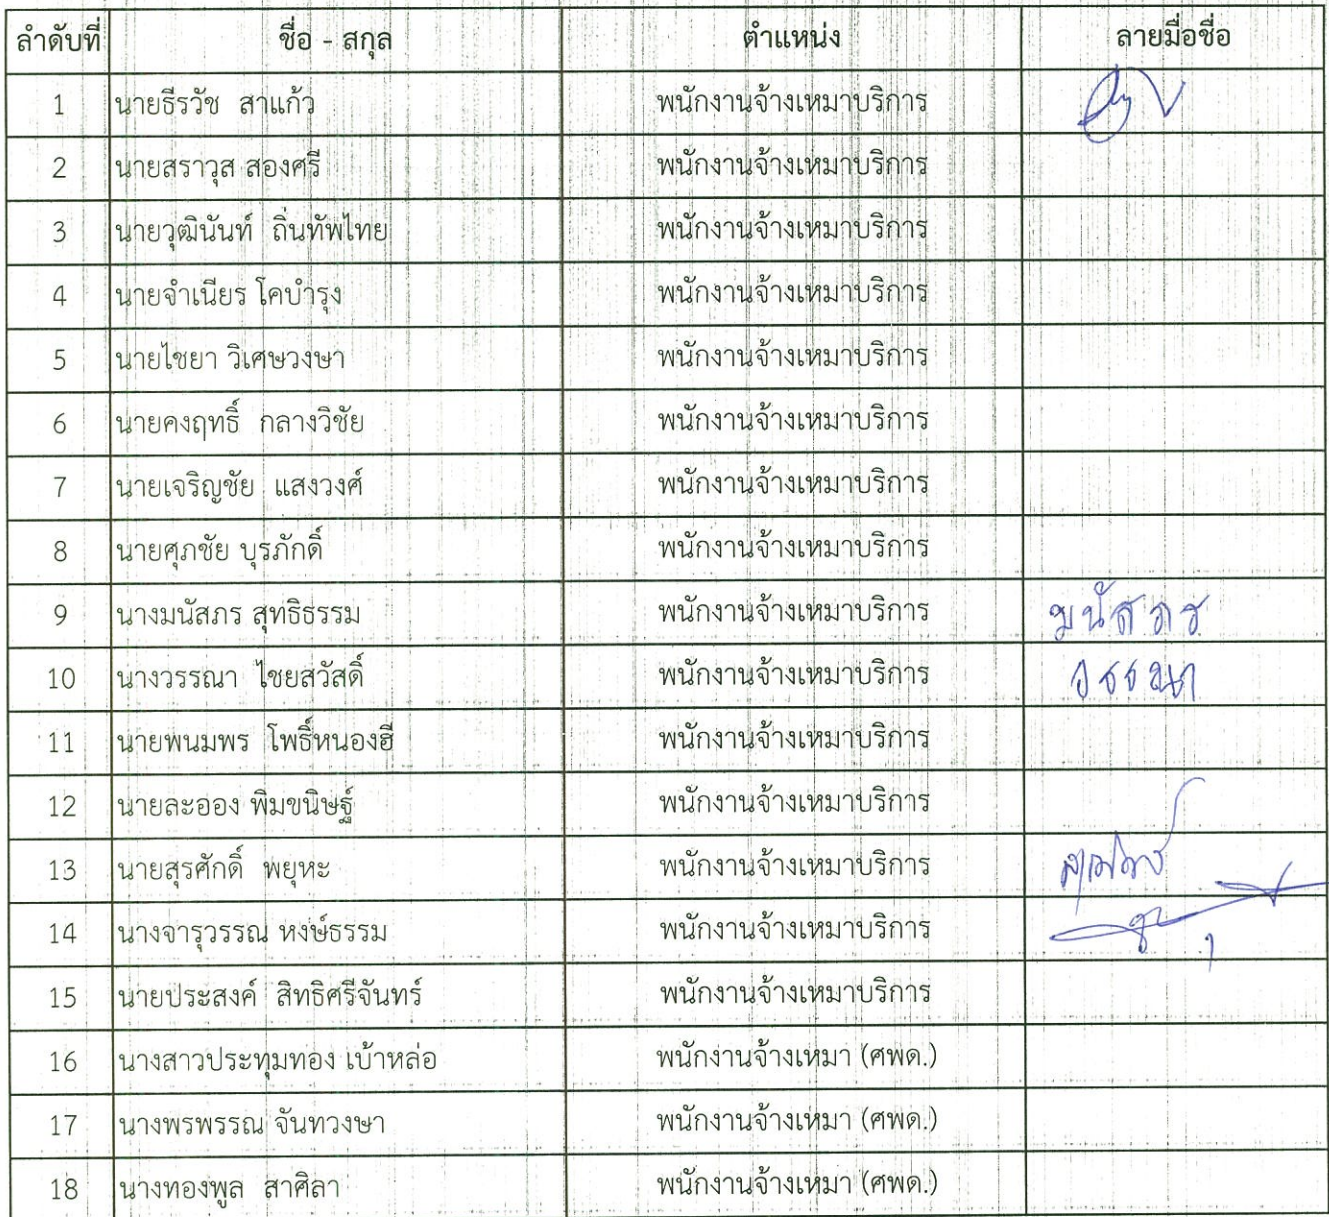 ลำดับที่ ชื่อ - สกุล ตำแหน่ง ลายมือชื่อ
1 นายธีรวัช สาแก้ว พนักงานจ้างเหมาบริการ
2 นายสราวุส สองศรี พนักงานจ้างเหมาบริการ
3 นายวุฒินันท์ ถิ่นทัพไทย พนักงานจ้างเหมาบริการ
4 นายจำเนียร โคบำรุง พนักงานจ้างเหมาบริการ
5 นายไชยา วิเศษวงษา พนักงานจ้างเหมาบริการ
6 นายคงฤทธิ์ กลางวิชัย พนักงานจ้างเหมาบริการ
7 นายเจริญชัย แสงวงศ์ พนักงานจ้างเหมาบริการ
8 นายศุภชัย บุรภักดิ์ พนักงานจ้างเหมาบริการ
9 นางมนัสภร สุทธิธรรม พนักงานจ้างเหมาบริการ มนัสภร
10 นางวรรณา ไชยสวัสดิ์ พนักงานจ้างเหมาบริการ วรรณา
11 นายพนมพร โพธิ์หนองฮี พนักงานจ้างเหมาบริการ
12 นายละออง พิมขนิษฐ์ พนักงานจ้างเหมาบริการ
13 นายสุรศักดิ์ พยุหะ พนักงานจ้างเหมาบริการ
14 นางจารุวรรณ หงษ์ธรรม พนักงานจ้างเหมาบริการ
15 นายประสงค์ สิทธิศรีจันทร์ พนักงานจ้างเหมาบริการ
16 นางสาวประทุมทอง เบ้าหล่อ พนักงานจ้างเหมา (ศพด.)
17 นางพรพรรณ จันทวงษา พนักงานจ้างเหมา (ศพด.)
18 นางทองพูล สาศิลา พนักงานจ้างเหมา (ศพด.)